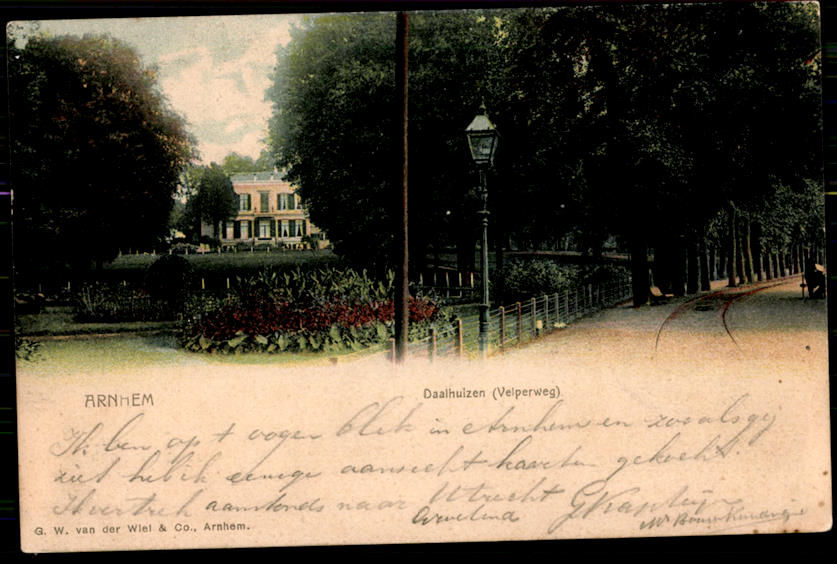 ARNHEM
Daalhuizen (Velperweg)
Ik ben op + oogenblik in Arnhem en zooals gij
ziet heb ik eenige aansichtkaarten gekocht.
Ik vertrek aanstonds naar Utrecht
G. W. van der Wiel & Co., Arnhem.